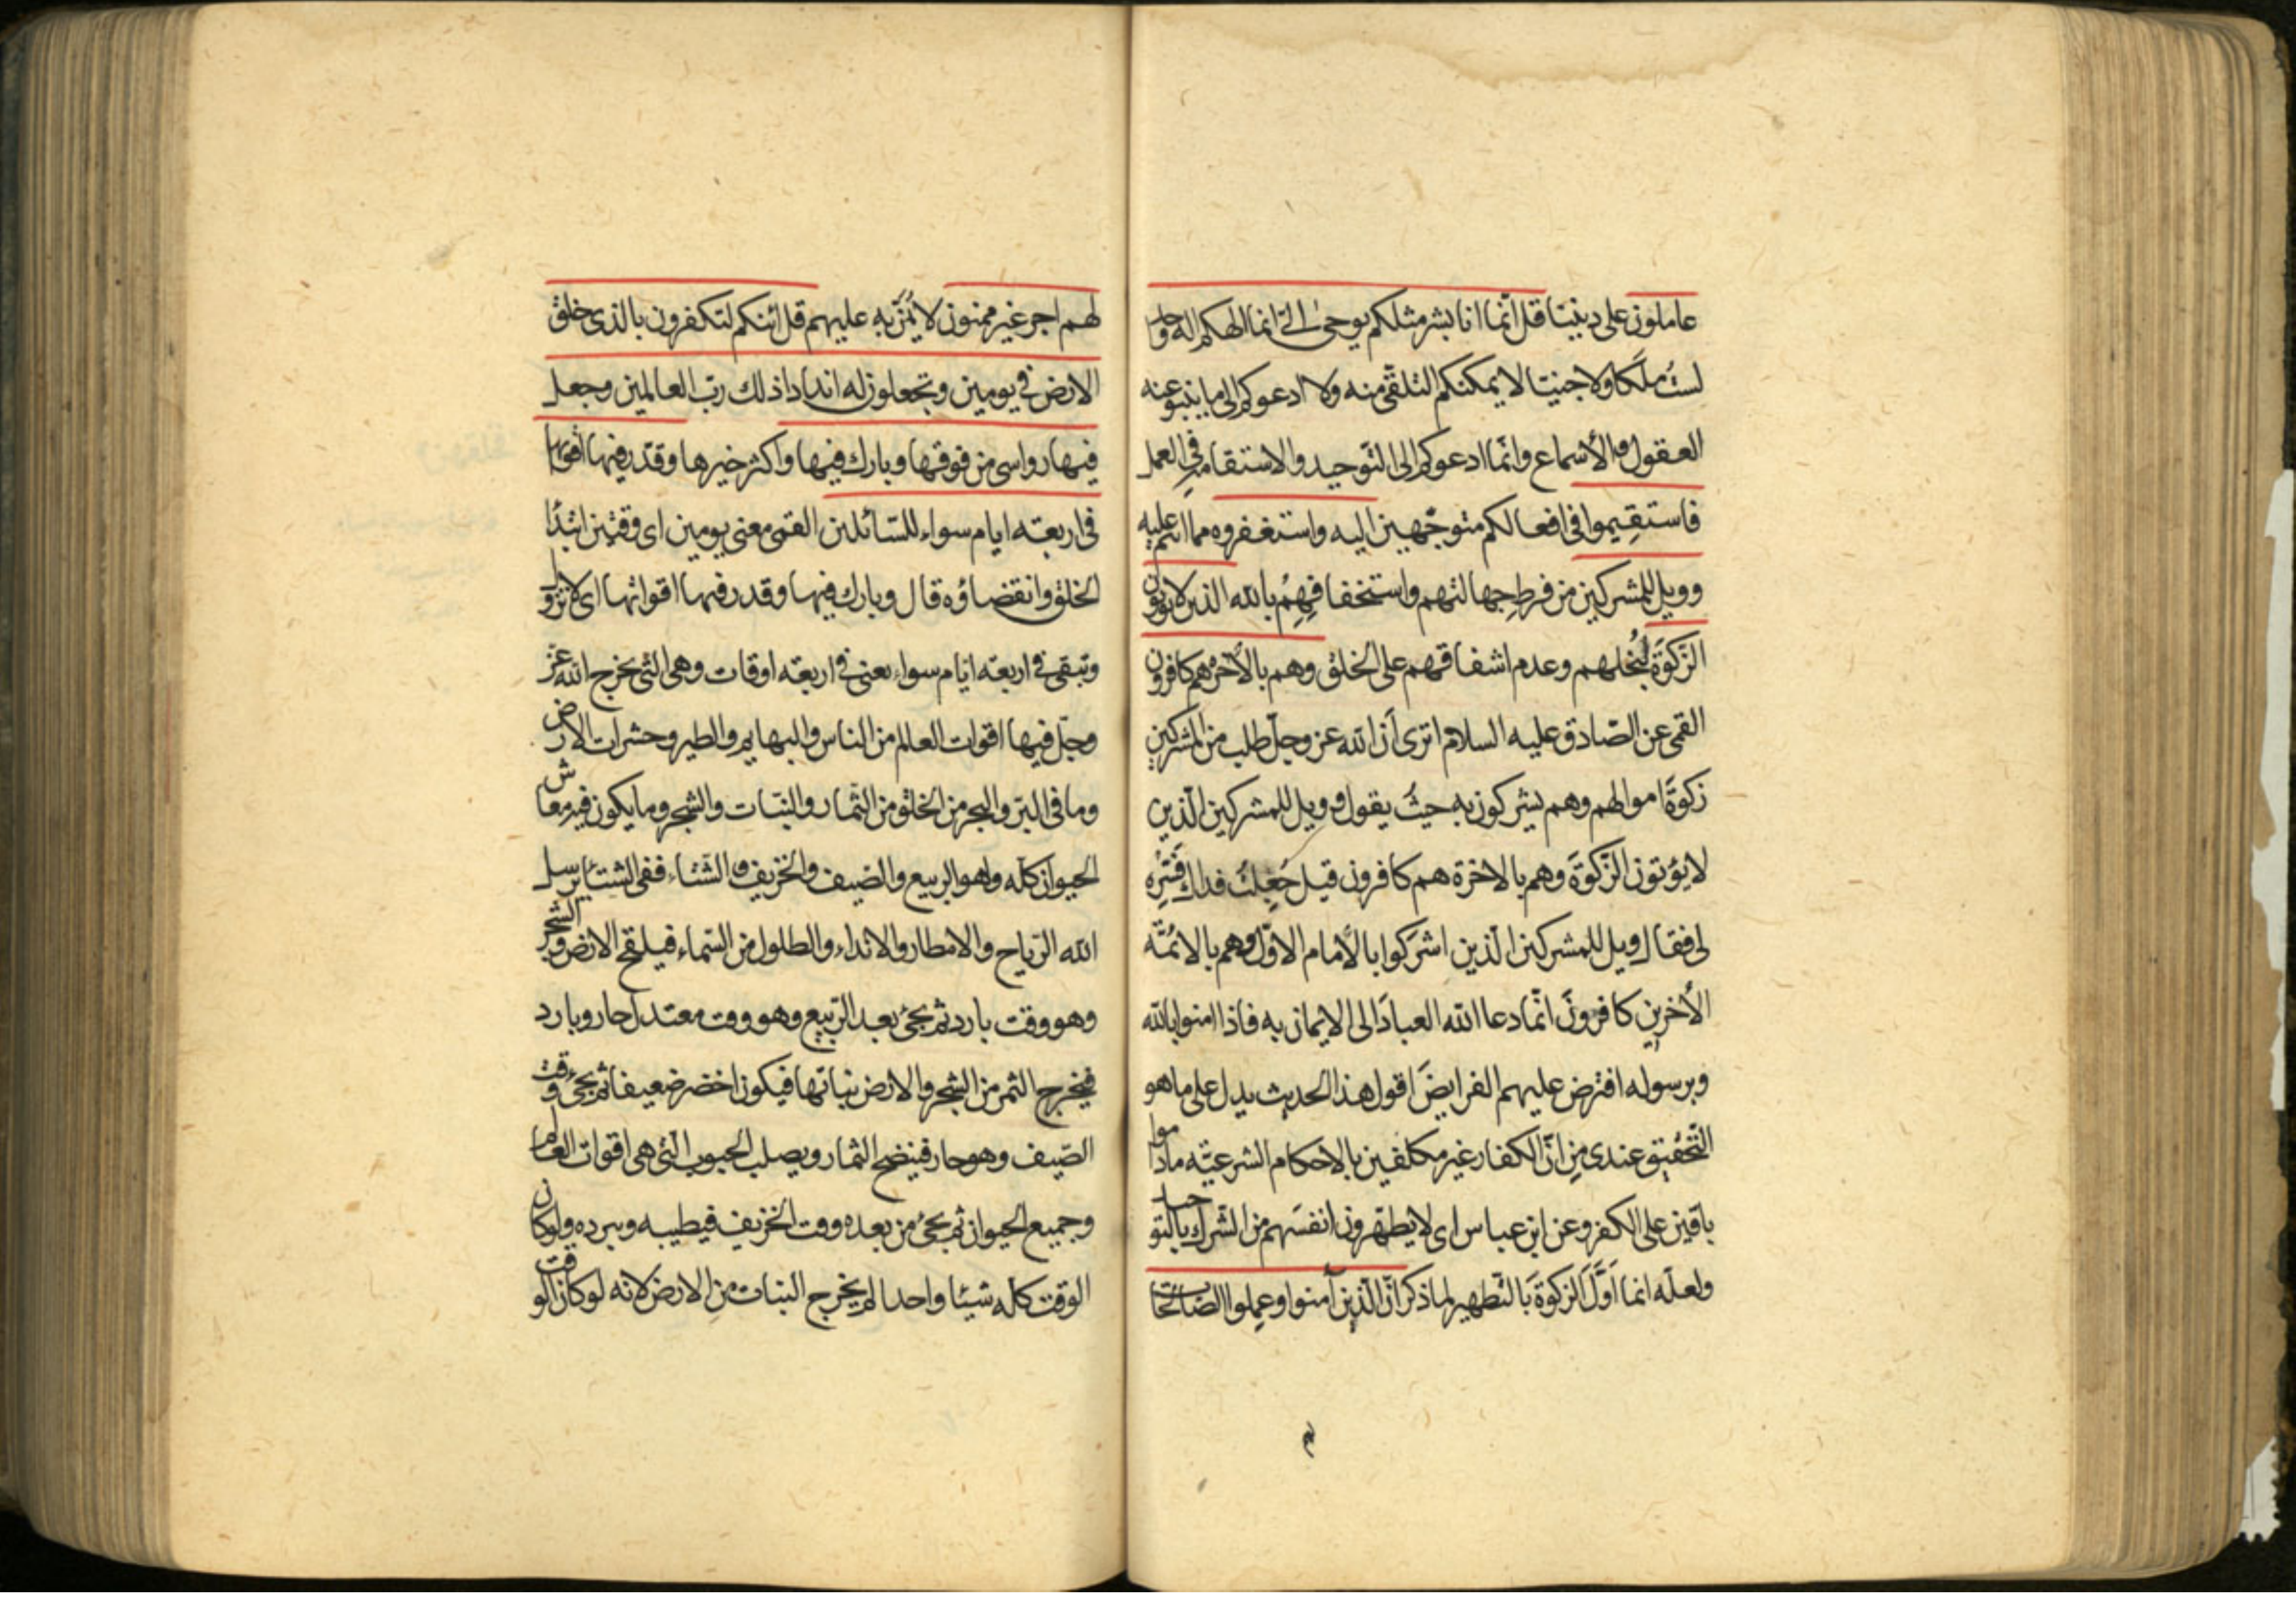 عاملون على ديننا قل انّما انا بشر مثلكم يوحىٰ الىّ انما الهكم اله واحد
لستُ ملَكا ولا جنيّا لا يمكنكم التلقّى منه ولا ادعوكم الى ما ينبو عنه
العقول والأسماع وانّما ادعوكم الى التّوحيد والاستقامة فى العمل
فاستقِيموا فى افعالكم متوجّهين اليه واستغفروه مما انتم عليه
وويل للمشركين من فرطِ جهالتهم واستخفافِهِم بالله الذين لا يؤتون
الزّكوةَ لبُخلهم وعدم اشفاقهم على الخلق وهم بالأخرة هم كافرون
القمى عن الصّادق عليه السلام اترى أنّ الله عز وجلّ طلب من المشركين
زكوةَ اموالهم وهم يشركون به حيثُ يقول وويل للمشركين الّذين
لا يؤتون الزّكوةَ وهم بالاخرة هم كافرون قيل جُعِلتُ فداك فَسّره
لى فقال ويل للمشركين الّذين اشرَكوا بالأمام الاوّل وهم بالائمّة
الأخرين كافرونَ انّما دعا الله العبادَ الى الايمان به فاذا امنوا بالله
وبرسوله افترض عليهم الفرايضَ اقول هذا الحديث يدل على ما هو
التّحقيق عندى مِن انّ الكفار غير مكلفين بالاحكام الشرعيّة ما داموا
باقين على الكفر وعن ابن عباس اى لا يطهّرون انفسَهم من الشّرك بالتوحيد
ولعلّه انما اَوَّلَ الزكوةَ بالتّطهير لما ذكر انّ الّذين آمنوا وعملوا الصّالحات
لهم اجر غير ممنون لا يُمَنّ به عليهم قل ائنكم لتكفرون بالذى خلق
الارض فى يومين وتجعلون له اندادا ذلك ربّ العالمين وجعل
فيها رواسى من فوقها وبارك فيها واكثر خيرها وقدّر فيها اقواتها
فى اربعة ايام سواء للسّائلين القمى معنى يومين اى وقتين ابتداء
الخلق وانقضاؤه قال وبارك فيها وقدر فيها اقواتها اى لا تزول
وتبقى فى اربعة ايّام سواء يعنى فى اربعة اوقات وهى التى يخرج الله عز
وجلّ فيها اقوات العالم من الناس والبهايم والطير وحشرات الارض
وما فى البرّ والبحر من الخلق من الثّمار والنبّات والشجر وما يكون فيه معاش
الحيوان كلّه وهو الربيع والصّيف والخريف والشّتاء ففى الشتاء يرسل
الله الرّياح والامطار والانداء والطلول من السّماء فيلقح الارض والشجر
وهو وقت بارد ثم يجئ بعد الرّبيع وهو وقت معتدل حار وبارد
فيخرج الثمر من الشجر والارض نباتها فيكون اخضر ضعيفا ثم يجئ وقت
الصّيف وهو حار فينضج الثمار ويصلب الحبوب الّتى هى اقوات العالم
وجميع الحيوان ثم يجئ من بعده وقت الخريف فيطيبه ويبرده ولو كان
الوقت كلّه شيئا واحدا لم يخرج النبات من الارض لانه لو كان الوقت